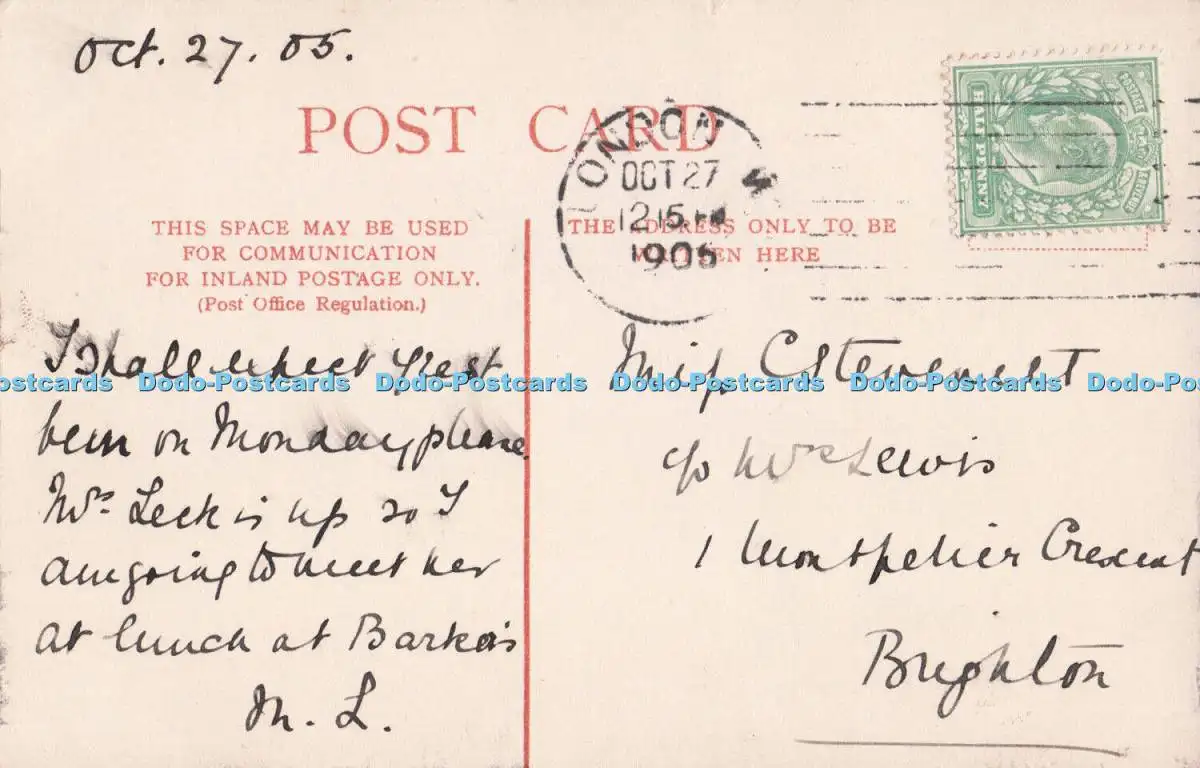 Oct. 27. 05.
POST CARD
LONDON
OCT 27
12 15 PM
1905
HALF PENNY
POSTAGE
THIS SPACE MAY BE USED
FOR COMMUNICATION
FOR INLAND POSTAGE ONLY.
(Post Office Regulation.)
THE ADDRESS ONLY TO BE
WRITTEN HERE
I shall expect
on Monday please
Mrs Leck is up so I
am going to meet her
at lunch at Barkers
M. L.
Miss C Stewart
c/o Mrs Lewis
1 Montpelier Crescent
Brighton
Dodo-Postcards Dodo-Postcards Dodo-Postcards Dodo-Postcards Dodo-Postcards